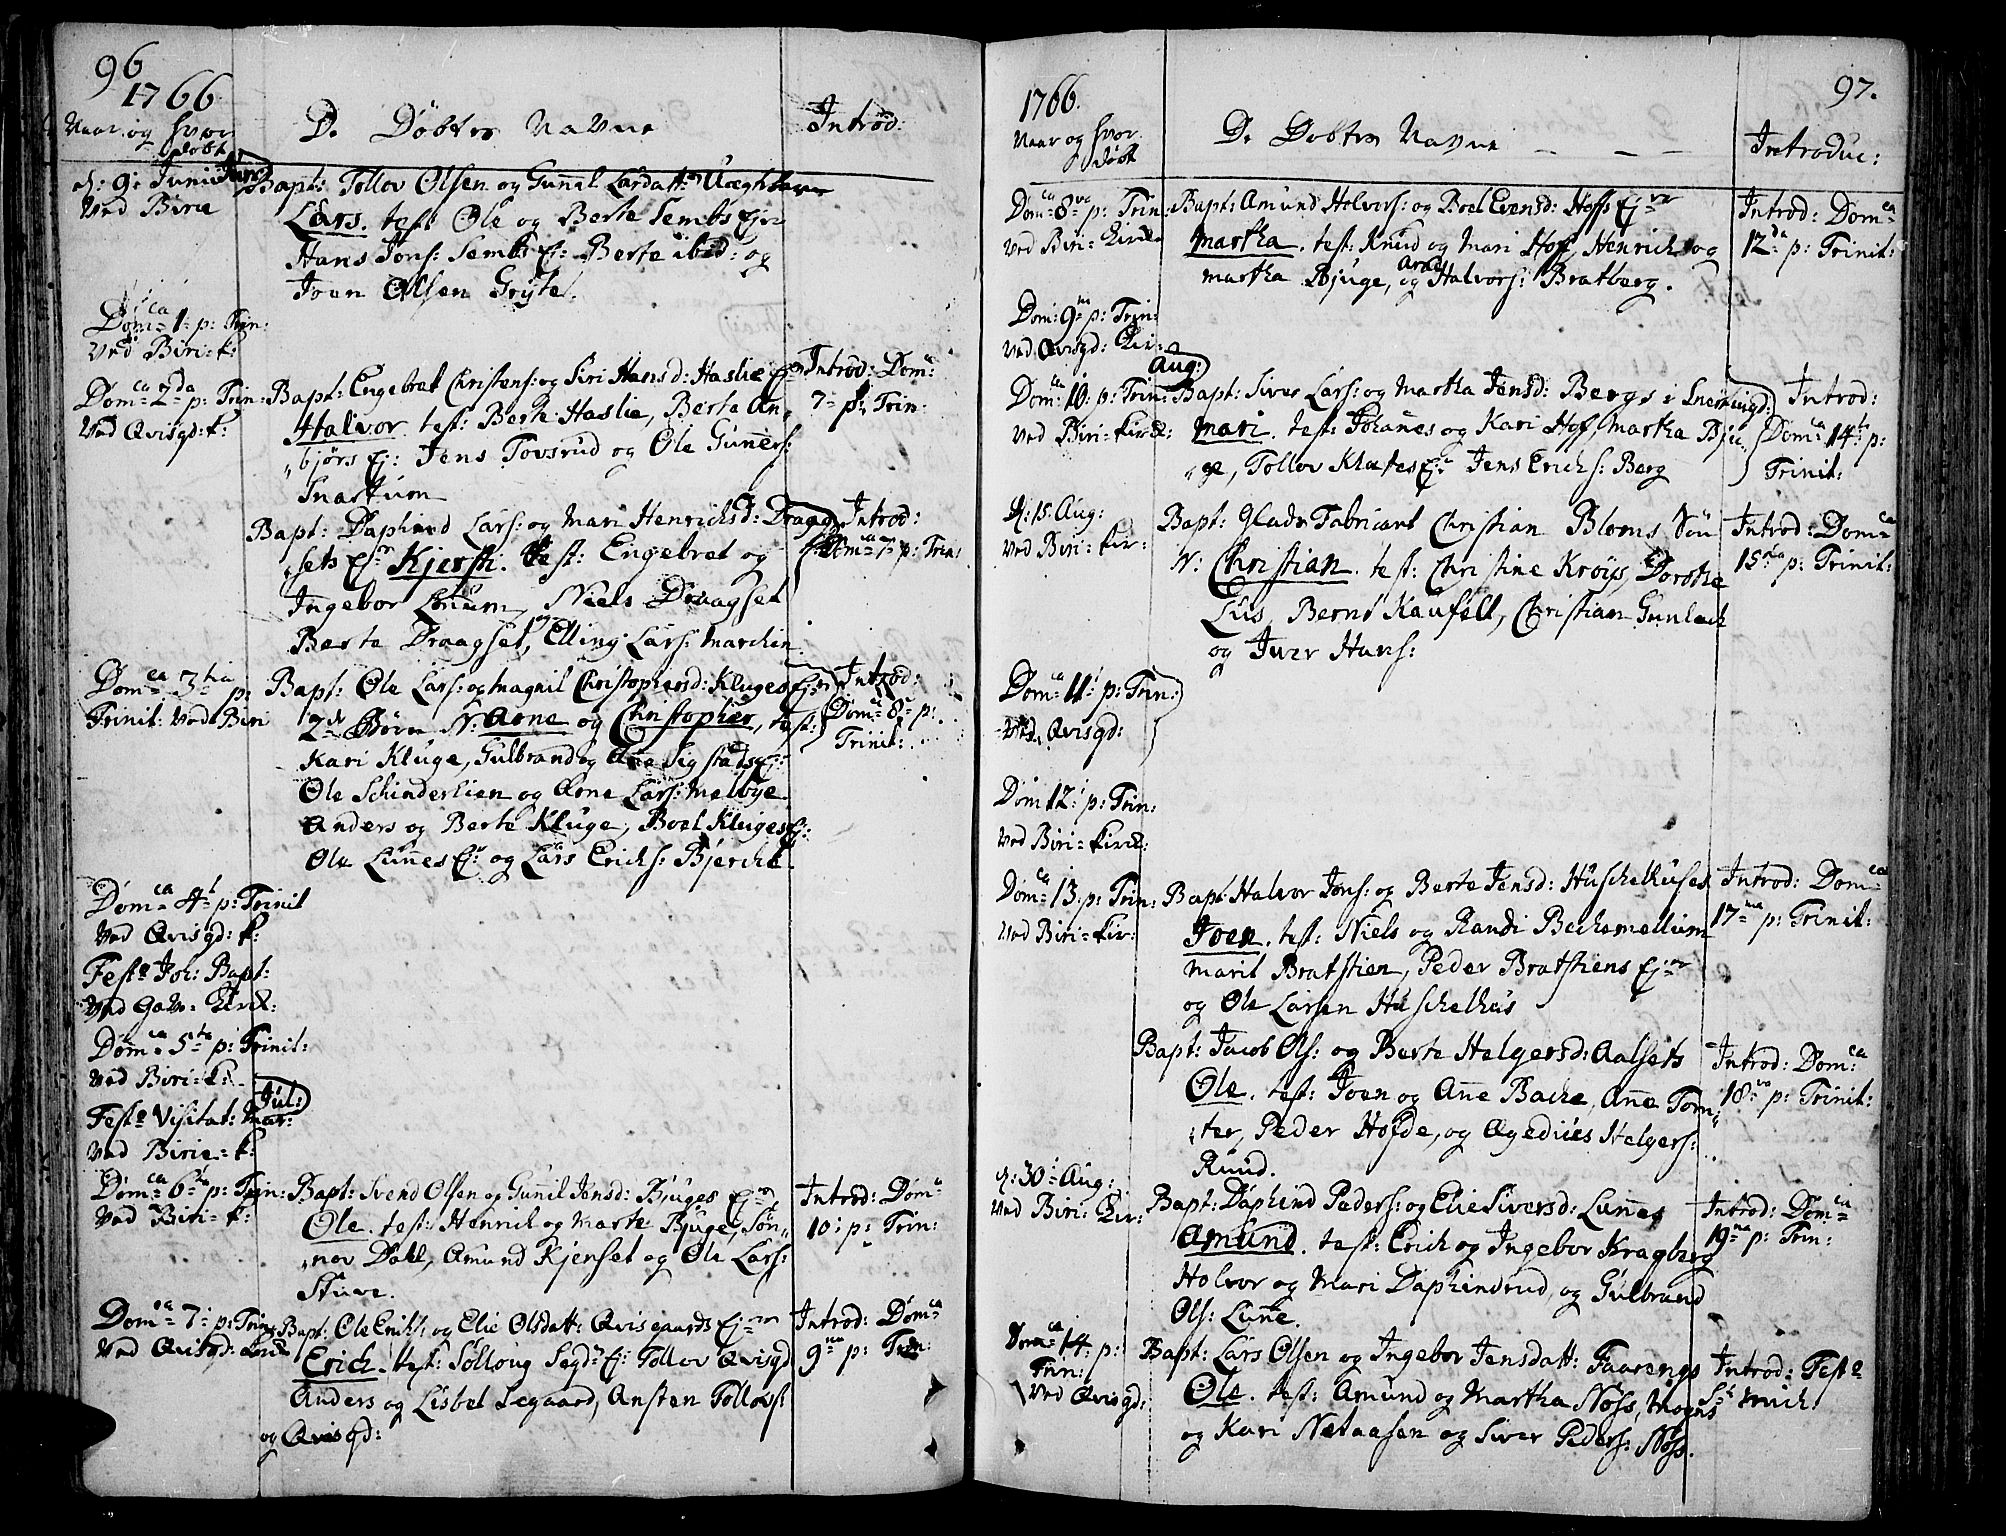 96
1766
Naar og hvor døbt
De Døbtes Navne
Introd:
d: 9: Junii
Ved Birie
Jun:
Bapt: Tollov Olsen og Gunnil Larsdatt:
Lars. test Ole og Berte Sembs Ejer
Hans Jons: Sembs Ej: Berte ibid: og
Joen Olsen Gryte.
Dom:ca 1. p: Trin:
Ved Biri=k:
Dom:ca 2da p: Trin:
Ved Qvisgd: k:
Bapt: Engebret Christens: og Siri Hansd: Haslie Ejer
Halvor. test: Berte Haslie, Berte An,
„bjørs Ej: Jens Tovsrud og Ole Gunners:
Snartum
Introd: Dom:
7: p: Trin:
Bapt: Daphind Lars: og Mari Henrichsd: Draag
„sets Ejer Kjersti. test: Engebret og
Ingebor Lønnum, Niels Draagset
Berte Draagset, og Elling Lars: Marchin
Introd:
Dom:ca 7: p: Trin:
Dom:ca 3tia p:
Trinit: Ved Biri
Bapt: Ole Lars: og Magnil Christophersd: Kluges Ejer
2de Børn N: Arne og Christopher, test:
Kari Kluge, Gulbrand og Ana Sigstads Ej:
Ole Schinderlien og Arne Lars: Melbye
Anders og Berte Kluge, Boel Kluges Ej:
Ole Lunnes Ej: og Lars Erichs: Bjercke
Introd:
Dom:a 8: p:
Trinit:
Dom:ca 4: p: Trinit
Ved Qvisgd: k:
Fest: Joh: Bapt:
Ved Kirk:
Dom:ca 5ta p: Trinit:
Ved Biri=k.
Jul:
Fest: Visitat: Mar:
Ved Birie=k:
Dom:ca 6ta p: Trin:
Ved Biri=k:
Bapt: Svend Olsen og Gunnil Jensd: Bjuges Ejer
Ole. test: Henric og Marte Bjuge, Søn„
„nov Dahl, Amund Kjenset og Ole Lars:
Stuve.
Introd: Dom:
10: p: Trin:
Dom:ca 7: p: Trin:
Ved Qvisgd: Kirk
Bapt: Ole Eriks: og Elie Olsdatt: Qvisgaards Ejer
Erich. test: Solloug Segd: Ej: Tollov Qvisgd
Anders og Lisbet Segaard, Ansten Tollovs:
og Qvisgd:
Introd: Dom:ca
9na p: Trin:
1766.
97.
Naar og hvor døbt
De Døbtes Navne — — —
Introduc:
Dom:ca 8va p: Trin:
Ved Biri=Kirk
Bapt: Amund Holvors: og Boel Evensd: Hoffs Ejer
Martha. test: Knud og Mari Hof, Henrich og
Martha Bjuge, og Arne Halvors: Bratberg.
Introd: Dom:ca
12da p: Trinit:
Dom: 9na p: Trin:
Ved Qvisgd: Kir:
Aug:
Dom:ca 10: p: Trin:
Ved Biri=kirk:
Bapt: Siver Lars: og Martha Jensd: Bergs i Snertingd:
Mari. test: Johanes og Kari Hof, Martha Bju„
„ge, Tollov Klætes Ej: Jens Erichs: Berg
Introd:
Dom:ca 14ta p:
Trinit:
d: 15. Aug:
Ved Biri=kir:
Bapt: Glads Fabricant Christian Bloms Søn
N: Christian. test: Christine Krøiys, Dorothe
Lus, Bernt Kaufelt, Christian Gunlach
og Iver Hans:
Introd: Dom:ca
15ta p: Trinit:
Dom:ca 11: p: Trin:
Ved Qvisgd:
Dom 12: p: Trin:
Ved Biri=kirk:
Dom:ca 13. p: Trin:
Ved Biri=kir:
Bapt Halvor Jons: og Berte Jensd: Huschelhuses
Joen. test: Niels og Randi Bechemellum
Marit Bratstien, Peder Bratstiens Ejer
og Ole Larsen Huschelhus
Introd: Dom:ca
17na p: Trinit:
Bapt: Jacob Ols: og Berte Helgersd: Aalsets
Ole. test: Joen og Anne Backe, Anne Tom„
„ter, Peder Hofde, og Ægedius Helgers:
Ruud.
Introd: Dom:ca
18va p: Trinit:
d: 30: Aug:
Ved Biri: Kir:
Bapt: Daphind Peders: og Elie Siversd: Lunnes
Amund. test: Erich og Ingebor Kragberg
Holvor og Mari Daphindrud, og Gulbrand
Ols: Lunne.
Introd: Dom:ca
19na p: Trin:
Dom:ca 14. p:
Trin:
Ved Qvisgd:
Bapt: Lars Olsen og Ingebor Jensdatt: Faarengs
Ole. test: Amund og Martha Nøss, Mogns
og Kari Nætaasen og Siver Peders: Nøss.
Introd: Fest:
St: Mich: